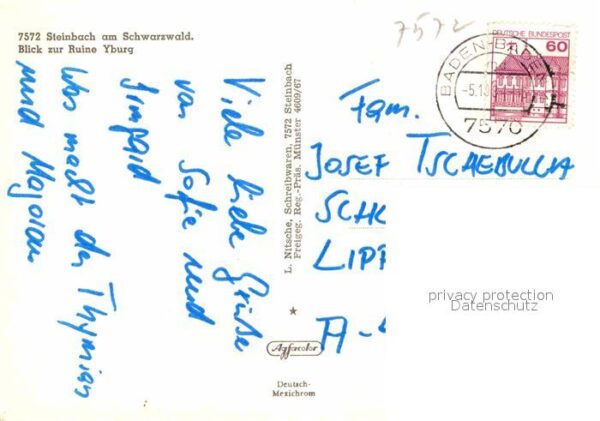 7572 Steinbach am Schwarzwald.
Blick zur Ruine Yburg
7572
DEUTSCHE BUNDESPOST
60
BADEN-BADEN
-5.10
7570
Viele liebe Grüße
von Sofie und
Irmgard
Was macht der Thymian
und Majoran
L. Nitsche, Schreibwaren, 7572 Steinbach
Freigeg. Reg.-Präs. Münster 4609/67
Agfacolor
Deutsch-
Mexichrom
Fam.
JOSEF TSCHEBULLA
SCH
LIPP
A-
privacy protection
Datenschutz